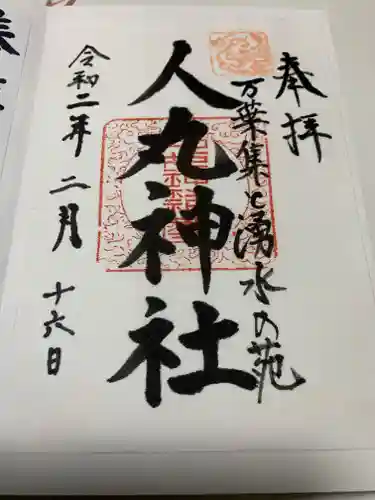 奉拝
万葉集と湧水の苑
人丸神社
令和二年二月十六日